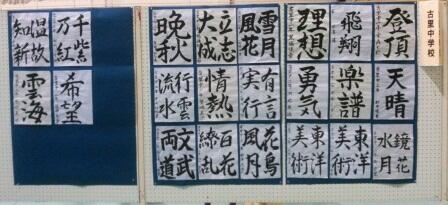 古里中学校
登頂
飛翔
理想
天晴
楽譜
勇気
鏡花
水月
東洋
美術
東洋
美術
雪月
風花
立志
大成
晩秋
有言
実行
情熱
行雲
流水
花鳥
風月
百花
繚乱
文武
両道
千紫
万紅
温故
知新
希望
雲海